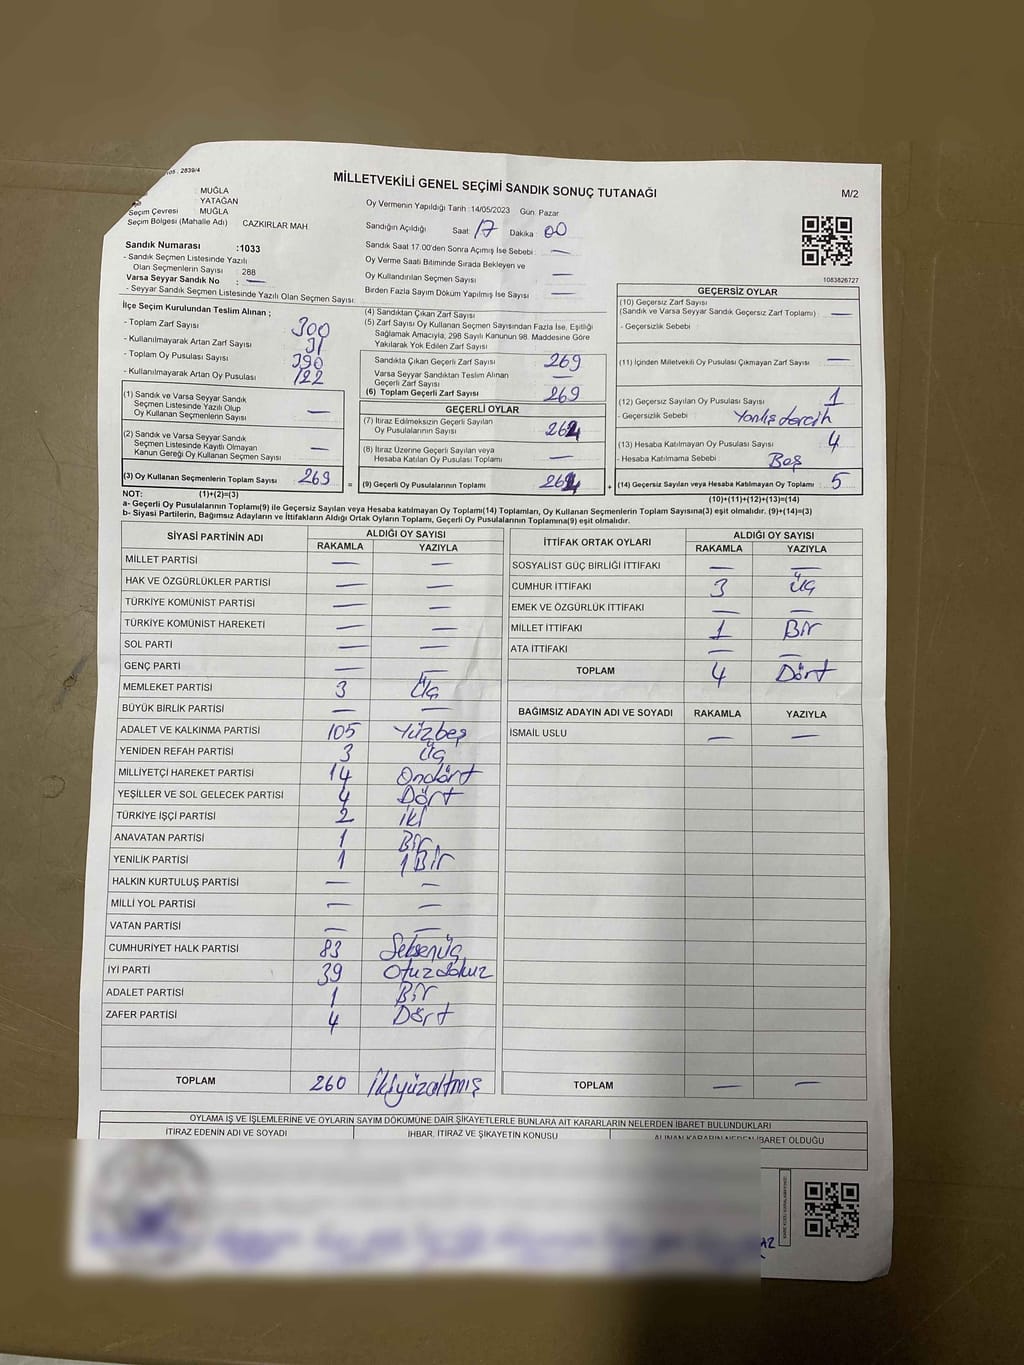 2839/4
MİLLETVEKİLİ GENEL SEÇİMİ SANDIK SONUÇ TUTANAĞI
M/2
MUĞLA
YATAĞAN
Seçim Çevresi MUĞLA
Seçim Bölgesi (Mahalle Adı) CAZKIRLAR MAH
Oy Vermenin Yapıldığı Tarih : 14/05/2023 Gün: Pazar
Sandığın Açıldığı Saat 17 Dakika : 00
Sandık Saat 17:00'den Sonra Açımış İse Sebebi : —
Oy Verme Saati Bitiminde Sırada Bekleyen ve
Oy Kullandırılan Seçmen Sayısı : —
Birden Fazla Sayım Döküm Yapılmış İse Sayısı : —
1083826727
Sandık Numarası :1033
- Sandık Seçmen Listesinde Yazılı
Olan Seçmenlerin Sayısı : 288
Varsa Seyyar Sandık No : —
- Seyyar Sandık Seçmen Listesinde Yazılı Olan Seçmen Sayısı:
İlçe Seçim Kurulundan Teslim Alınan ;
- Toplam Zarf Sayısı 300
- Kullanılmayarak Artan Zarf Sayısı 31
- Toplam Oy Pusulası Sayısı 390
- Kullanılmayarak Artan Oy Pusulası 122
(1) Sandık ve Varsa Seyyar Sandık
Seçmen Listesinde Yazılı Olup
Oy Kullanan Seçmenlerin Sayısı : —
(2) Sandık ve Varsa Seyyar Sandık
Seçmen Listesinde Kayıtlı Olmayan
Kanun Gereği Oy Kullanan Seçmen Sayısı : —
(3) Oy Kullanan Seçmenlerin Toplam Sayısı : 269
(4) Sandıktan Çıkan Zarf Sayısı
(5) Zarf Sayısı Oy Kullanan Seçmen Sayısından Fazla İse, Eşitliği
Sağlamak Amacıyla, 298 Sayılı Kanunun 98. Maddesine Göre
Yakılarak Yok Edilen Zarf Sayısı
Sandıkta Çıkan Geçerli Zarf Sayısı 269
Varsa Seyyar Sandıktan Teslim Alınan
Geçerli Zarf Sayısı —
(6) Toplam Geçerli Zarf Sayısı 269
GEÇERLİ OYLAR
(7) İtiraz Edilmeksizin Geçerli Sayılan
Oy Pusulalarının Sayısı: 264
(8) İtiraz Üzerine Geçerli Sayılan veya
Hesaba Katılan Oy Pusulası Toplamı —
= (9) Geçerli Oy Pusulalarının Toplamı 264 +
GEÇERSİZ OYLAR
(10) Geçersiz Zarf Sayısı
(Sandık ve Varsa Seyyar Sandık Geçersiz Zarf Toplamı) : —
- Geçersizlik Sebebi :
(11) İçinden Milletvekili Oy Pusulası Çıkmayan Zarf Sayısı : —
(12) Geçersiz Sayılan Oy Pusulası Sayısı : 1
- Geçersizlik Sebebi : Yanlış tercih
(13) Hesaba Katılmayan Oy Pusulası Sayısı : 4
- Hesaba Katılmama Sebebi : Boş
(14) Geçersiz Sayılan veya Hesaba Katılmayan Oy Toplamı : 5
NOT: (1)+(2)=(3)
(10)+(11)+(12)+(13)=(14)
a- Geçerli Oy Pusulalarının Toplamı(9) ile Geçersiz Sayılan veya Hesaba Katılmayan Oy Toplamı(14) Toplamları, Oy Kullanan Seçmenlerin Toplam Sayısına(3) eşit olmalıdır. (9)+(14)=(3)
b- Siyasi Partilerin, Bağımsız Adayların ve İttifakların Aldığı Ortak Oyların Toplamı, Geçerli Oy Pusulalarının Toplamına(9) eşit olmalıdır.
SİYASİ PARTİNİN ADI ALDIĞI OY SAYISI
RAKAMLA YAZIYLA
MİLLET PARTİSİ — —
HAK VE ÖZGÜRLÜKLER PARTİSİ — —
TÜRKİYE KOMÜNİST PARTİSİ — —
TÜRKİYE KOMÜNİST HAREKETİ — —
SOL PARTİ — —
GENÇ PARTİ — —
MEMLEKET PARTİSİ 3 Üç
BÜYÜK BİRLİK PARTİSİ — —
ADALET VE KALKINMA PARTİSİ 105 Yüzbeş
YENİDEN REFAH PARTİSİ 3 Üç
MİLLİYETÇİ HAREKET PARTİSİ 14 Ondört
YEŞİLLER VE SOL GELECEK PARTİSİ 4 Dört
TÜRKİYE İŞÇİ PARTİSİ 2 iki
ANAVATAN PARTİSİ 1 Bir
YENİLİK PARTİSİ 1 1 Bir
HALKIN KURTULUŞ PARTİSİ — —
MİLLİ YOL PARTİSİ — —
VATAN PARTİSİ — —
CUMHURİYET HALK PARTİSİ 83 Seksenüç
İYİ PARTİ 39 Otuzdokuz
ADALET PARTİSİ 1 Bir
ZAFER PARTİSİ 4 Dört
TOPLAM 260 İkiyüzaltmış
İTTİFAK ORTAK OYLARI ALDIĞI OY SAYISI
RAKAMLA YAZIYLA
SOSYALİST GÜÇ BİRLİĞİ İTTİFAKI — —
CUMHUR İTTİFAKI 3 Üç
EMEK VE ÖZGÜRLÜK İTTİFAKI — —
MİLLET İTTİFAKI 1 Bir
ATA İTTİFAKI — —
TOPLAM 4 Dört
BAĞIMSIZ ADAYIN ADI VE SOYADI RAKAMLA YAZIYLA
İSMAİL USLU — —
TOPLAM — —
OYLAMA İŞ VE İŞLEMLERİNE VE OYLARIN SAYIM DÖKÜMÜNE DAİR ŞİKAYETLERLE BUNLARA AİT KARARLARIN NELERDEN İBARET BULUNDUKLARI
İTİRAZ EDENİN ADI VE SOYADI İHBAR, İTİRAZ VE ŞİKAYETİN KONUSU ALINAN KARARIN NEDEN İBARET OLDUĞU